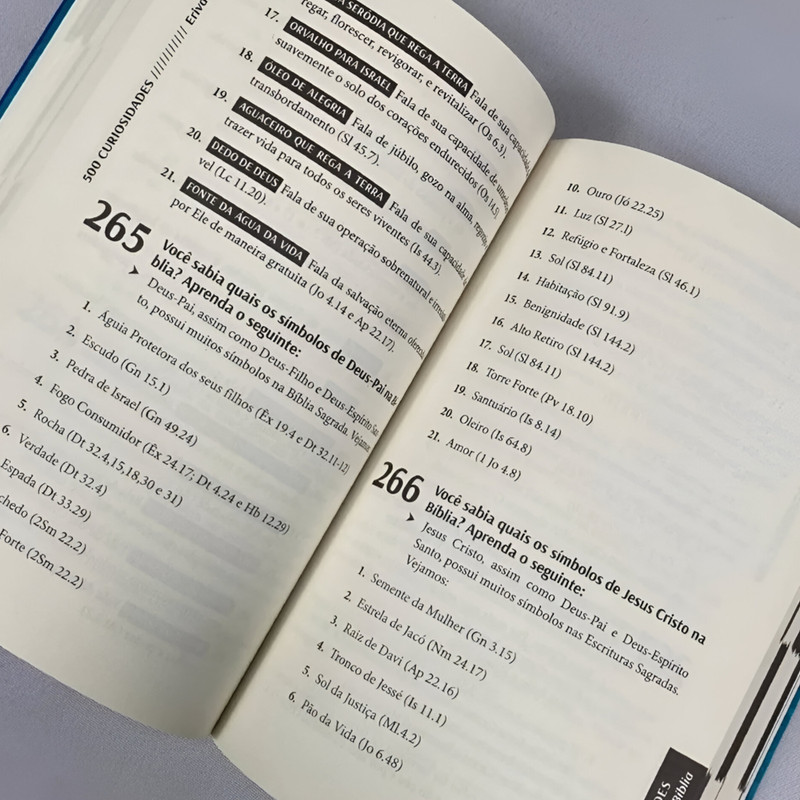 500 CURIOSIDADES ////////// Eriva
A SERÓDIA QUE REGA A TERRA Fala de sua capacidade
regar, florescer, revigorar, e revitalizar (Os 6.3).
17. ORVALHO PARA ISRAEL Fala de sua capacidade de
suavemente o solo dos corações endurecidos (Os 14.5)
18. ÓLEO DE ALEGRIA Fala de júbilo, gozo na alma,
transbordamento (Sl 45.7).
19. AGUACEIRO QUE REGA A TERRA Fala de sua capacidade
trazer vida para todos os seres viventes (Is 44.3).
20. DEDO DE DEUS Fala de sua operação sobrenatural e
vel (Lc 11.20).
21. FONTE DA ÁGUA DA VIDA Fala da salvação eterna
por Ele de maneira gratuita (Jo 4.14 e Ap 22.17).
265 Você sabia quais os símbolos de Deus-Pai na Bí-
blia? Aprenda o seguinte:
➤ Deus-Pai, assim como Deus-Filho e Deus-Espírito San
to, possui muitos símbolos na Bíblia Sagrada. Vejamos
1. Águia Protetora dos seus filhos (Êx 19.4 e Dt 32.11-12)
2. Escudo (Gn 15.1)
3. Pedra de Israel (Gn 49.24)
4. Fogo Consumidor (Êx 24.17; Dt 4.24 e Hb 12.29)
5. Rocha (Dt 32.4,15,18,30 e 31)
6. Verdade (Dt 32.4)
Espada (Dt 33.29)
chedo (2Sm 22.2)
Forte (2Sm 22.2)
10. Ouro (Jó 22.25)
11. Luz (Sl 27.1)
12. Refúgio e Fortaleza (Sl 46.1)
13. Sol (Sl 84.11)
14. Habitação (Sl 91.9)
15. Benignidade (Sl 144.2)
16. Alto Retiro (Sl 144.2)
17. Sol (Sl 84.11)
18. Torre Forte (Pv 18.10)
19. Santuário (Is 8.14)
20. Oleiro (Is 64.8)
21. Amor (1 Jo 4.8)
266 Você sabia quais os símbolos de Jesus Cristo na
Bíblia? Aprenda o seguinte:
➤ Jesus Cristo, assim como Deus-Pai e Deus-Espírito
Santo, possui muitos símbolos nas Escrituras Sagradas.
Vejamos:
1. Semente da Mulher (Gn 3.15)
2. Estrela de Jacó (Nm 24.17)
3. Raiz de Davi (Ap 22.16)
4. Tronco de Jessé (Is 11.1)
5. Sol da Justiça (Ml.4.2)
6. Pão da Vida (Jo 6.48)
DES
Bíblia